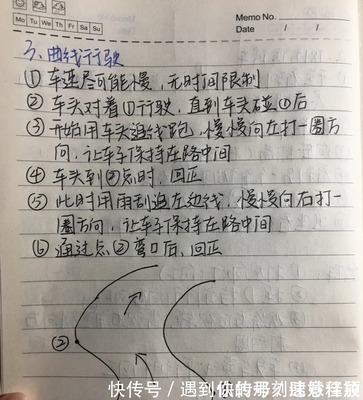 Mo Tu We Th Fr Sa Su
Memo No.
Date / /
3、曲线行驶
① 车速尽可能慢,无时间限制
② 车头对着①行驶,直到车头碰①后
③ 开始用车头追线跑,慢慢向左打一圈方
向,让车子保持在路中间
④ 车头到②点时,回正
⑤ 此时用雨刮追左边线,慢慢向右打一
圈方向,让车子保持在路中间
⑥ 通过点②弯口后,回正
②
快传号/遇到你的那刻